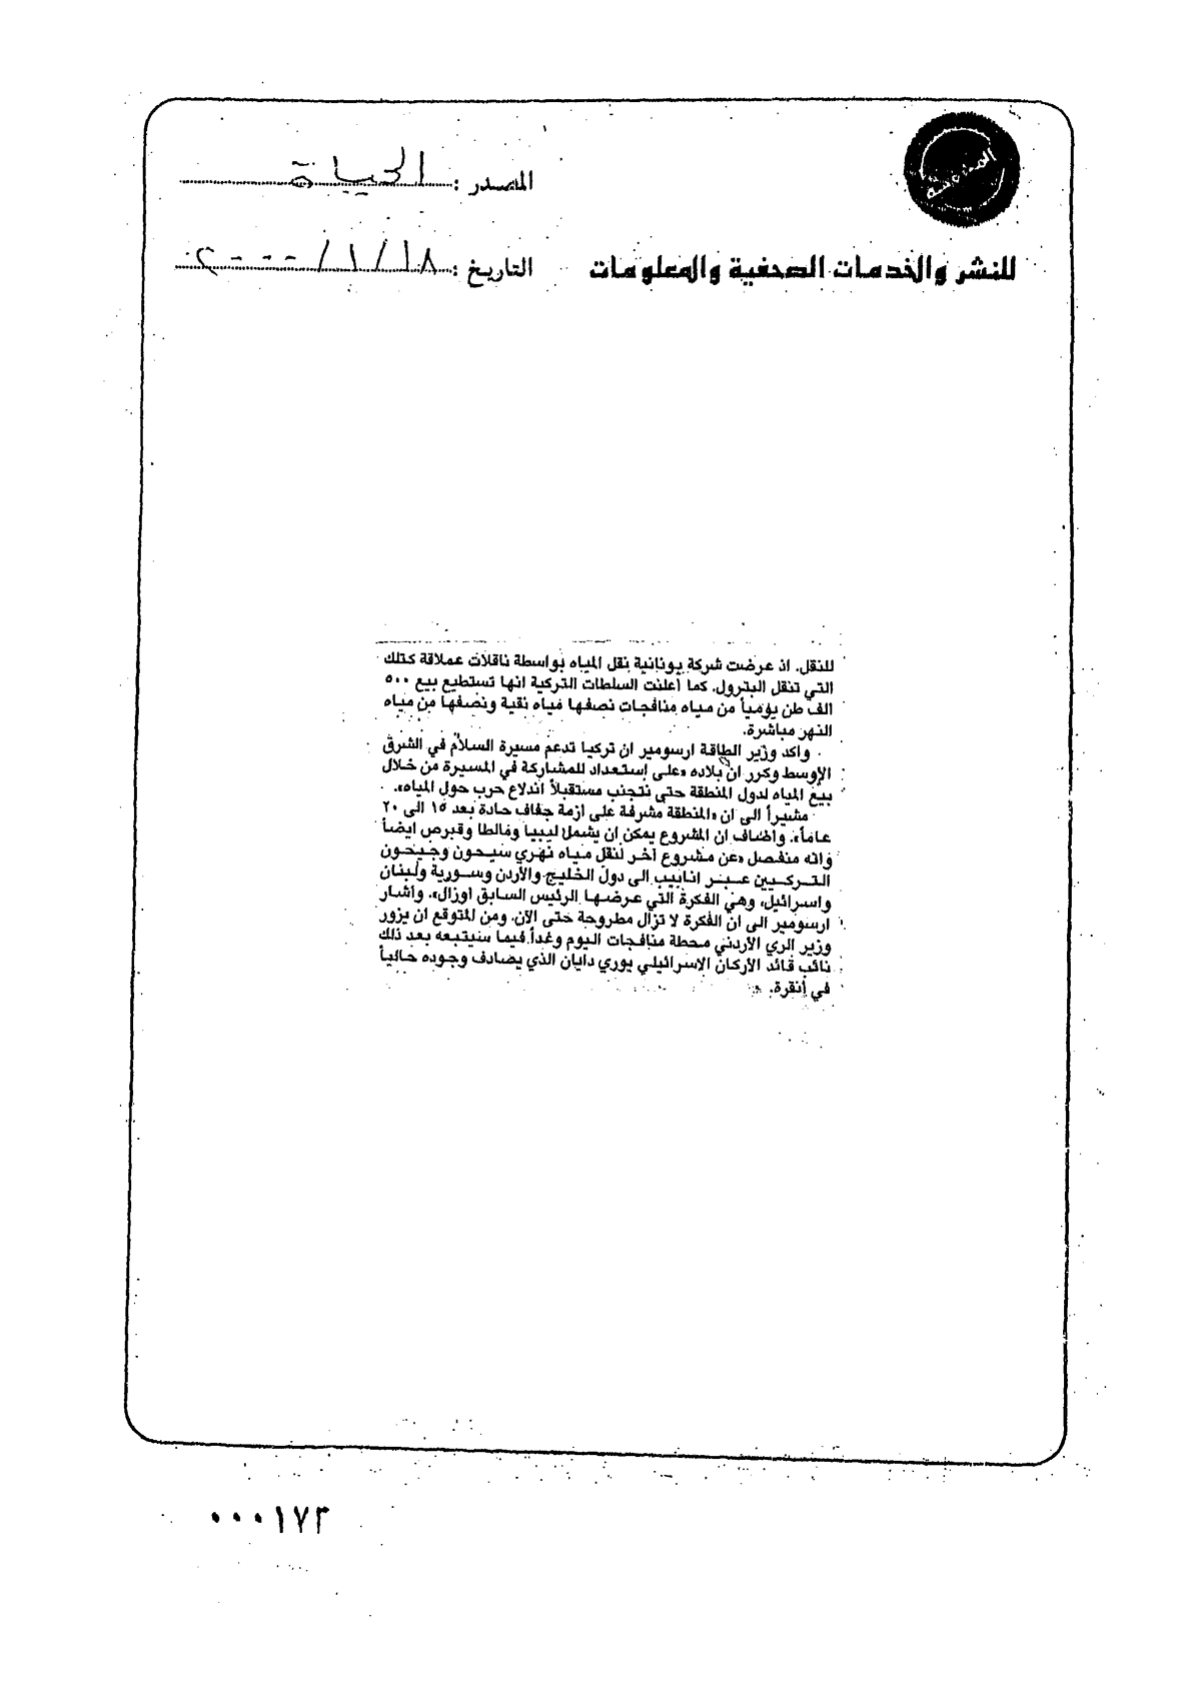 المصدر : الحياة
للنشر والخدمات الصحفية والمعلومات
التاريخ : ١٨ / ١ / ٢٠٠٠
للنقل. اذ عرضت شركة يونانية نقل المياه بواسطة ناقلات عملاقة كتلك
التي تنقل البترول. كما أعلنت السلطات التركية انها تستطيع بيع ٥٠٠
الف طن يومياً من مياه منافجات نصفها مياه نقية ونصفها من مياه
النهر مباشرة.
واكد وزير الطاقة ارسومير ان تركيا تدعم مسيرة السلام في الشرق
الاوسط وكرر ان بلاده «على إستعداد للمشاركة في المسيرة من خلال
بيع المياه لدول المنطقة حتى نتجنب مستقبلاً اندلاع حرب حول المياه».
مشيراً الى ان «المنطقة مشرفة على ازمة جفاف حادة بعد ١٥ الى ٢٠
عاماً». واضاف ان المشروع يمكن ان يشمل ليبيا ومالطا وقبرص ايضاً
وانه منفصل «عن مشروع آخر لنقل مياه نهري سيحون وجيحون
التركيين عبر انابيب الى دول الخليج والأردن وسورية ولبنان
واسرائيل، وهي الفكرة التي عرضها الرئيس السابق اوزال». واشار
ارسومير الى ان الفكرة لا تزال مطروحة حتى الآن. ومن المتوقع ان يزور
وزير الري الأردني محطة منافجات اليوم وغداً فيما سيتبعه بعد ذلك
نائب قائد الأركان الإسرائيلي يوري دايان الذي يصادف وجوده حالياً
في أنقرة.
٠٠٠١٧٣